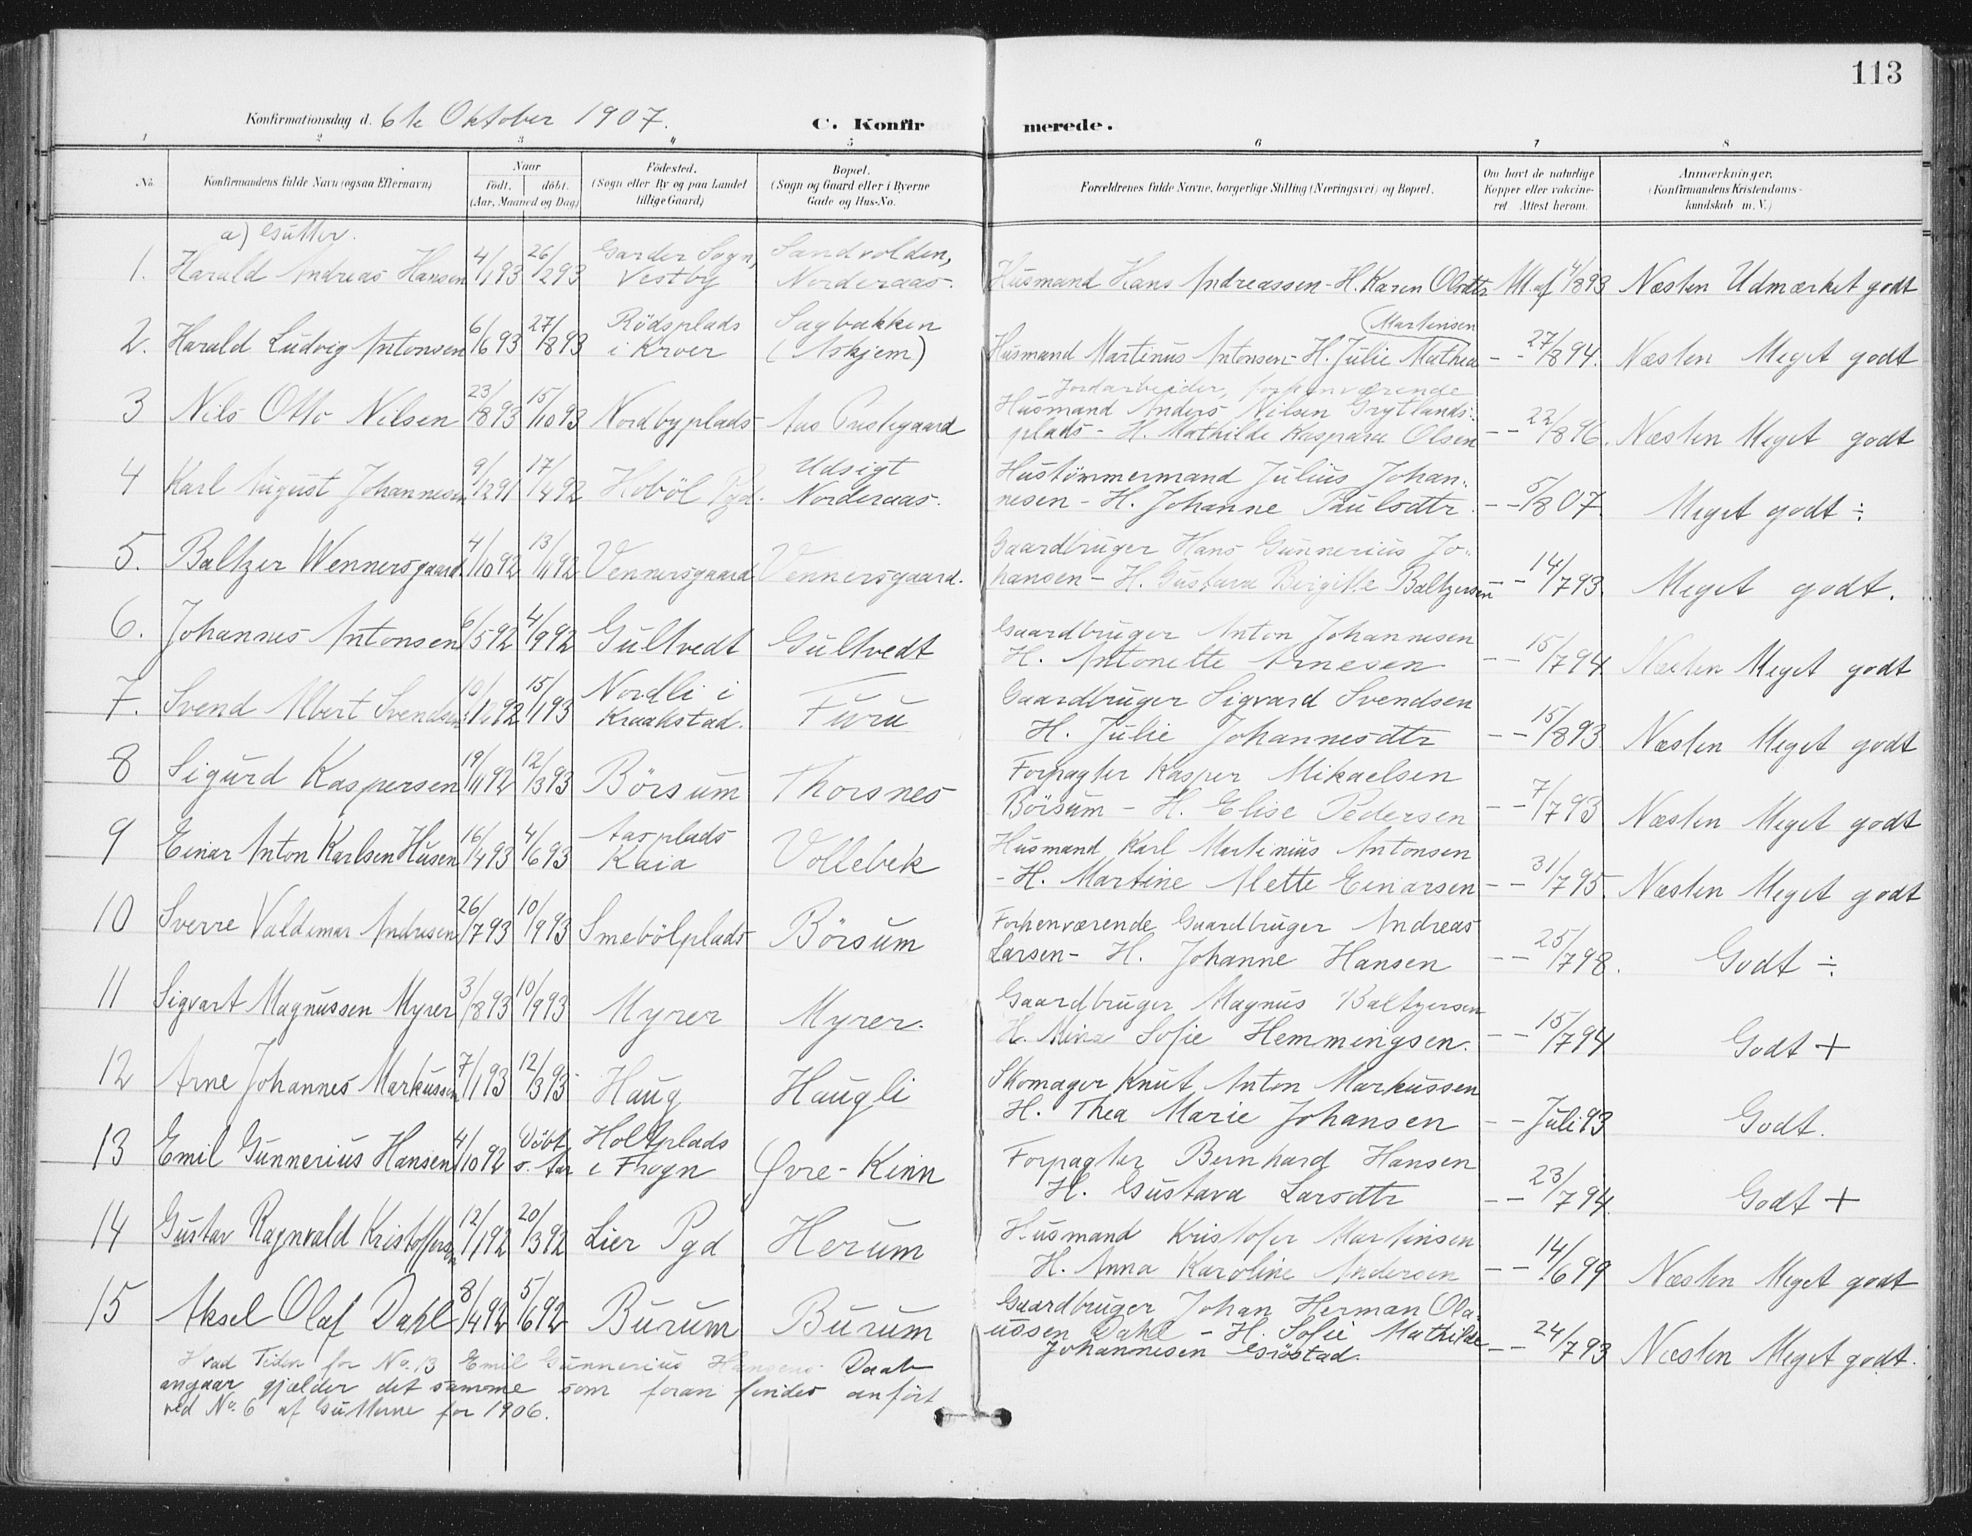 113
Konfirmationsdag d. 6te Oktober 1907.
C. Konfirmerede.
1 2 3 4 5 6 7 8
No. Konfirmandens fulde Navn (ogsaa Efternavn) Naar født. døbt. (Aar, Maaned og Dag) Fødested. (Sogn eller By og paa Landet tillige Gaard) Bopæl. (Sogn og Gaard eller i Byerne Gade og Hus-No. Forældrenes fulde Navne, borgerlige Stilling (Næringsvei) og Bopæl. Om havt de naturlige Kopper eller vakcineret. Attest herom. Anmærkninger. (Konfirmandens Kristendomskundskab m. V.)
a) Gutter.
1. Harald Andreas Hansen 4/1 93 26/2 93 Garder Sogn, Vestby Sandvolden, Norderaas. Husmand Hans Andreassen - H. Karen Olsdtr Att. af 4/8 93 Næsten Udmærket godt
2. Harald Ludvig Antonsen 6/6 93 27/8 93 Rödsplads i Kroer Sagbakken (Askjem) Husmand Martinus Antonsen - H. Julie Mathea (Martinsen - - 27/8 94. Næsten Meget godt
3 Nils Otto Nilsen 23/8 93 15/10 93 Nordbyplads Aas Prestegaard Jordarbeider, forhenværende Husmand Anders Nilsen Grytlands:plads - H. Mathilde Kaspara Olsen - - 22/8 96. Næsten Meget godt
4 Karl August Johannesen 9/12 91 17/4 92 Hoböl Pgd. Udsigt Norderaas. Hustömmermand Julius Johan:nesen - H. Johanne Paulsdtr. - - 5/8 07. Meget godt ÷
5. Baltzer Wennersgaard 4/10 92 13/11 92 Vennersgaard Vennersgaard. Gaardbruger Hans Gunnerius Jo:hansen - H. Gustava Birgitte Baltzersen - - 14/7 93. Meget godt.
6. Johannes Antonsen 6/5 92 4/9 92 Gultvedt Gultvedt Gaardbruger Anton Johannesen H. Antonette Arnesen - - 15/7 94 Næsten Meget godt
7. Svend Albert Svendsen 10/12 92 15/1 93 Nordli i Kraakstad. Furu Gaardbruger Sigvard Svendsen H. Julie Johannesdtr - - 15/8 93. Næsten Meget godt
8 Sigurd Kaspersen 19/11 92 12/3 93 Börsum Thorsnes Forpagter Kasper Mikaelsen Börsum - H. Elise Pedersen - - 7/7 93 Næsten Meget godt
9 Einar Anton Karlsen Husen 16/4 93 4/6 93 Aasplads Kaia Vollebek Husmand Karl Martinius Antonsen - H. Martine Alette Einarsen - - 31/7 95. Næsten Meget godt
10 Sverre Valdemar Andresen 26/7 93 10/9 93 Smebölplads Börsum Forhenværende Gaardbruger Andreas Larsen - H. Johanne Hansen - - 25/7 98. Godt ÷
11 Sigvart Magnussen Myrer 3/8 93 10/9 93 Myrer Myrer. Gaardbruger Magnus Baltzersen H. Mina Sofie Hemmingsen. - - 15/7 94 Godt +
12 Arne Johannes Markussen 7/1 93 12/3 93 Haug Haugli Skomager Knut Anton Markussen H. Thea Marie Johansen - - Juli 93 Godt.
13 Emil Gunnerius Hansen 4/10 92 Döbt s. Aar Holtplads i Frogn Øvre-Kinn Forpagter Bernhard Hansen H. Gustava Larsdtr - - 23/7 94. Godt +
14 Gustav Ragnvald Kristoffersen 12/1 92 20/3 92 Lier Pgd Herum Husmand Kristofer Martinsen H. Anna Karoline Andersen - - 14/6 99 Næsten Meget godt
15 Aksel Olaf Dahl 8/4 92 5/6 92 Burum Burum Gaardbruger Johan Herman Ola:ussen Dahl - H. Sofie Mathilde Johannesen - - 24/7 93 Næsten Meget godt.
Hvad Tiden for No. 13 Emil Gunnerius Hansens Daab
angaar gjælder det samme som foran findes anført
ved No. 6 af Gutterne for 1906.